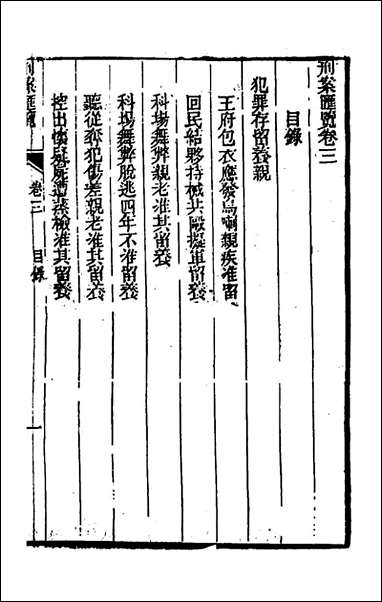 刑案匯覽卷三
目錄
犯罪存留養親
王府包衣應發烏喇親疾准留
回民結夥持械共毆擬軍留養
科場舞弊親老准其留養
科場舞弊脫逃四年不准留養
聽從奪犯傷差親老准其留養
控出懷疑屍遭蒸檢准其留養
刑案匯覽 卷三 目錄 一